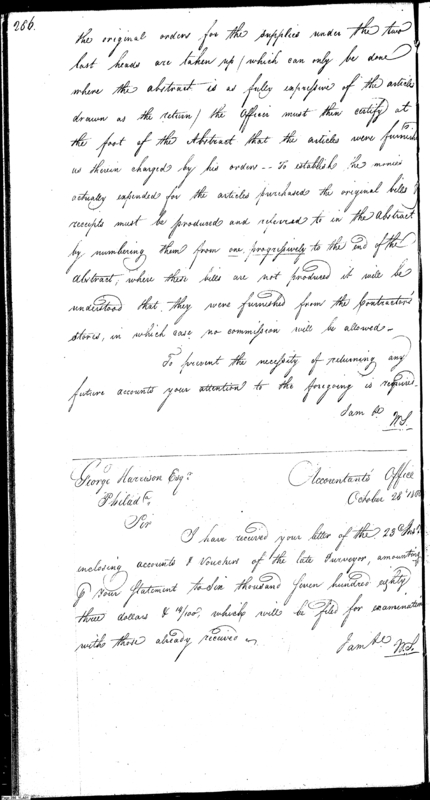 286.
the original orders for the supplies under the two
last heads are taken up (which can only be done
where the abstract is as fully expressive of the articles
drawn as the return) the Officer must then certify at
the foot of the Abstract that the articles were furnished
as therein charged by his orders -- To establish the monies
actually expended for the articles purchased the original bills &
receipts must be produced and referred to in the Abstract
by numbering them from one progressively to the end of the
Abstract; where these bills are not produced it will be
understood that they were furnished from the Contractors'
stores, in which case no commission will be allowed.
To prevent the necessity of returning any
future accounts your attention to the foregoing is required.
I am &c
W.S.
George Harrison Esqr.
Accountants Office
Philada.
October 28th
Sir
I have received your letter of the 23d Inst.
inclosing accounts & Vouchers of the late Purveyor, amounting
Your Statement to Six thousand Seven hundred eighty
three dollars & /100, which will be filed for examination
with those already received
I am &c
W.S.